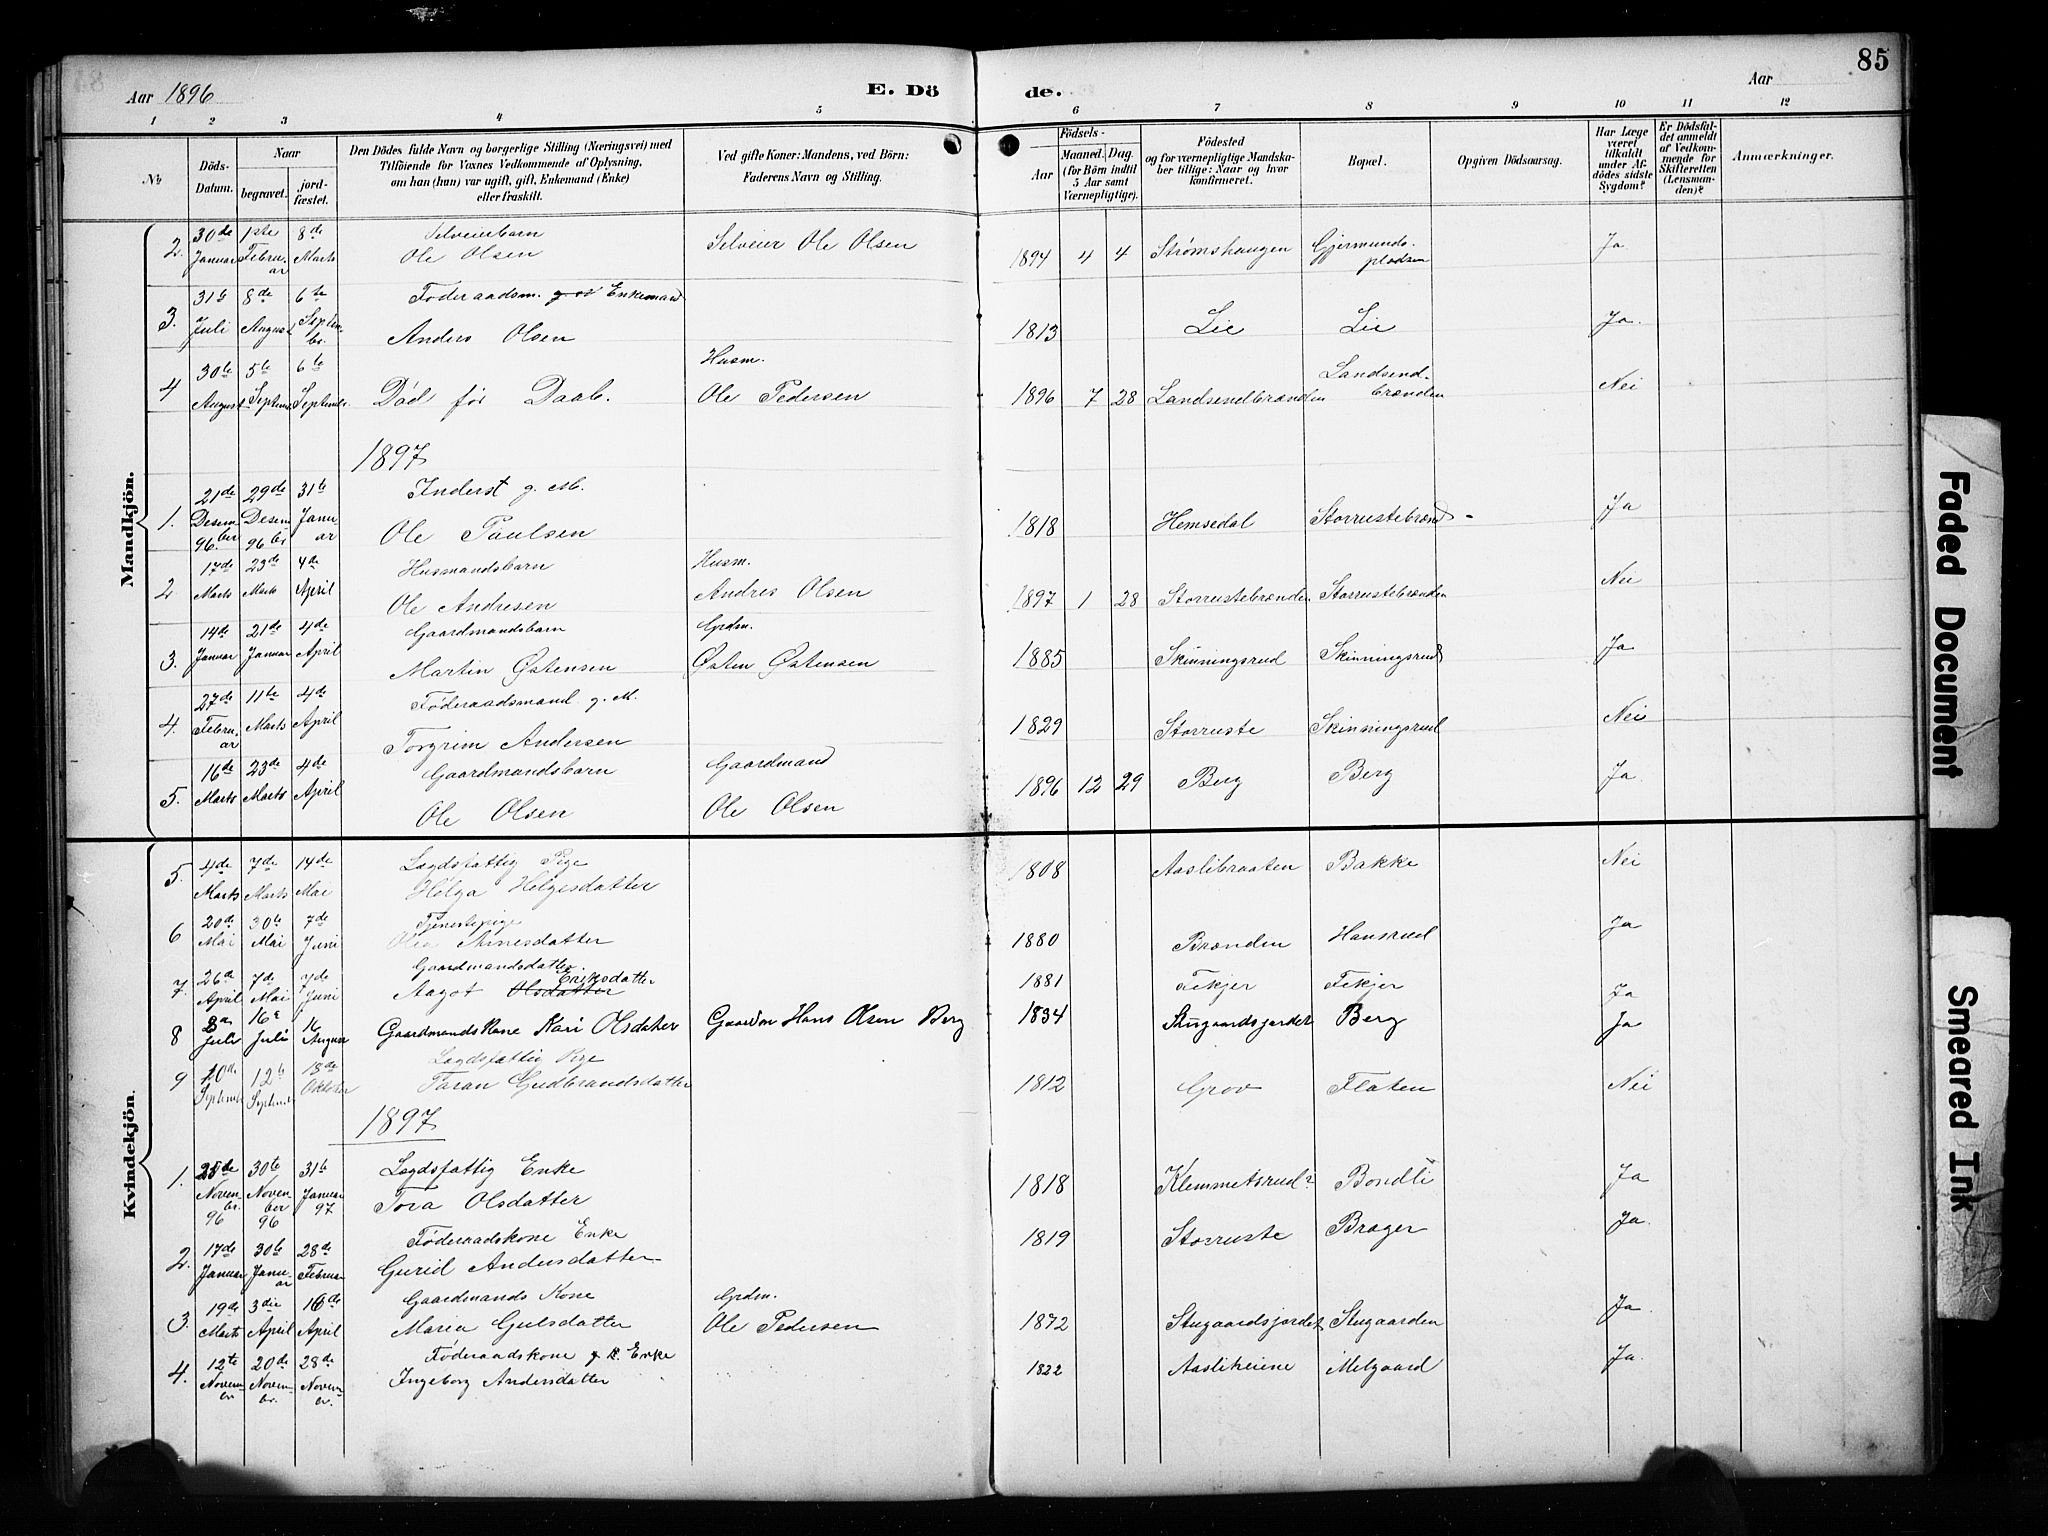 85
Aar 1896
E. Dö
de.
Aar
1 2 3 4 5 6 7 8 9 10 11 12
No
Döds-Datum.
Naar
begravet.
jord-fæstet.
Den Dödes fulde Navn og borgerlige Stilling (Næringsvei) med
Tilföiende for Voxnes Vedkommende af Oplysning,
om han (hun) var ugift, gift, Enkemand (Enke)
eller fraskilt.
Ved gifte Koner: Mandens, ved Börn:
Faderens Navn og Stilling.
Födsels-
Aar
Maaned. Dag.
(for Börn indtil
5 Aar samt
Værnepligtige).
Födested
og for værnepligtige Mandska-
ber tillige: Naar og hvor
konfirmeret.
Bopæl.
Opgiven Dödsaarsag.
Har Læge
været
tilkaldt
under Af-
dödes sidste
Sygdom?
Er Dödsfal-
det anmeldt
af Vedkom-
mende for
Skifteretten
(Lensman-
den)?
Anmærkninger.
Mandkjön.
2. 30de Januar 1ste Febru-ar 8de Marts Selveierbarn Ole Olsen Selveier Ole Olsen 1894 4 4 Strømshaugen Gjermunds-pladsen Ja
3. 31te Juli 8de August 6te Septem-br. Føderaadsm. Enkemand Anders Olsen 1813 Lie Lie Ja.
4 30te August 5te Septem. 6te Septembr. Død før Daab. Husm. Ole Pedersen 1896 7 28 Landsendbrænden Landsend-brænden Nei
1897
1. 21de Desem-ber 96. 29de Desem-br 96 31te Janu-ar Inderst g. M. Ole Paulsen 1818 Hemsedal Storrustebrænd- Ja
2 17de Marts 23de Marts 4de April Husmandsbarn Ole Andresen Husm. Andres Olsen 1897 1 28 Storrustebrænden Storrustebrænden Nei
3. 14de Januar 21de Januar 4de April Gaardmandsbarn Martin Østensen Grdm. Østen Østensen 1885 Skinningsrud Skinningsrud Ja
4. 27de Febru-ar 11te Marts 4de April Føderaadsmand g. M. Torgrim Andersen 1829 Storruste Skinningsrud Nei
5. 16de Marts 23de Marts 4de April Gaardmandsbarn Ole Olsen Gaardmand Ole Olsen 1896 12 29 Berg Berg Ja.
Kvindekjön.
5. 4de Marts 7de Marts 14de Mai Lægdsfattig Pige Helga Helgesdatter 1808 Aaslibraaten Bakke Nei
6 20de Mai 30te Mai 7de Juni Tjenestepige Olea Arnesdatter 1880 Brænden Hansrud Ja
7. 26de April 7de Mai 7de Juni Gaardmandsdatter. Aagot Olsdatter Eriksdatter 1881 Fekjer Fekjer Ja
8 Juli 16 Juli 16 August Gaardmandskone Kari Olsdatter Hans Olsen Berg 1834 Stugaardsjordet Berg Ja
9 10de Septembr 12te Septembr 18de Oktober Lægdsfattig Pige Taran Gudbrandsdatter 1812 Grov Flaten Nei
1897
1. 25de Novem-br. 96 30te Novem-ber 96 31te Januar 97 Lægdsfattig Enke Tora Olsdatter 1818 Klemmetsrud? Bondli Ja
2. 17de Januar 30te Janu-ar 28de Februar Føderaadskone Enke Gurid Andersdatter 1819 Storruste Brager Ja.
3. 19de Marts 3die April 16de April Gaardmands Kone Maria Gulsdatter Grdm. Ole Pedersen 1872 Stugaardsjordet Stugaarden Ja.
4. 12te Novem-br 20de Novem-br. 28de Novem-br. Føderaadskone Enke Ingeborg Andersdatter 1822 Aasliheiene Melgaard Ja.
Faded Document
Smeared Ink